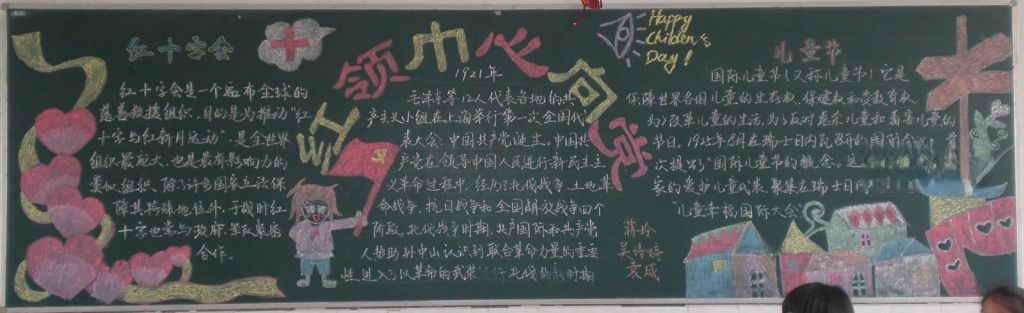 红十字会
红十字会是一个遍布全球的
慈善救援组织，目的是为推动“红
十字与红新月运动”，是全世界
组织最庞大，也是最有影响力的
类似组织，除了许多国家立法保
障其特殊地位外，于战时红
十字也常与政府、军队紧密
合作。
红领巾心向党
1921年
毛泽东等12人代表各地的共
产主义小组在上海举行第一次全国代
表大会，中国共产党诞生，中国共
产党在领导中国人民进行新民主主
义革命过程中，经历了北伐战争、土地革
命战争、抗日战争和全国解放战争四个
阶段，北伐战争时期，共产国际和共产党
人帮助孙中山认识到联合革命力量的重要
性，进入了以革命的武装 行北伐的新时期
Happy
Children's
Day!
儿童节
国际儿童节（又称儿童节）它是
保障世界各国儿童的生存权、保健权和受教育权
为了改革儿童的生活，为了反对虐杀儿童和毒害儿童的
节日，1925年8月在瑞士日内瓦召开的国际 首
次提出了“国际儿童节的概念，这
家的爱护儿童代表，聚集在瑞士日
“儿童幸福国际大会
蒋玲
吴婷婷
袁成